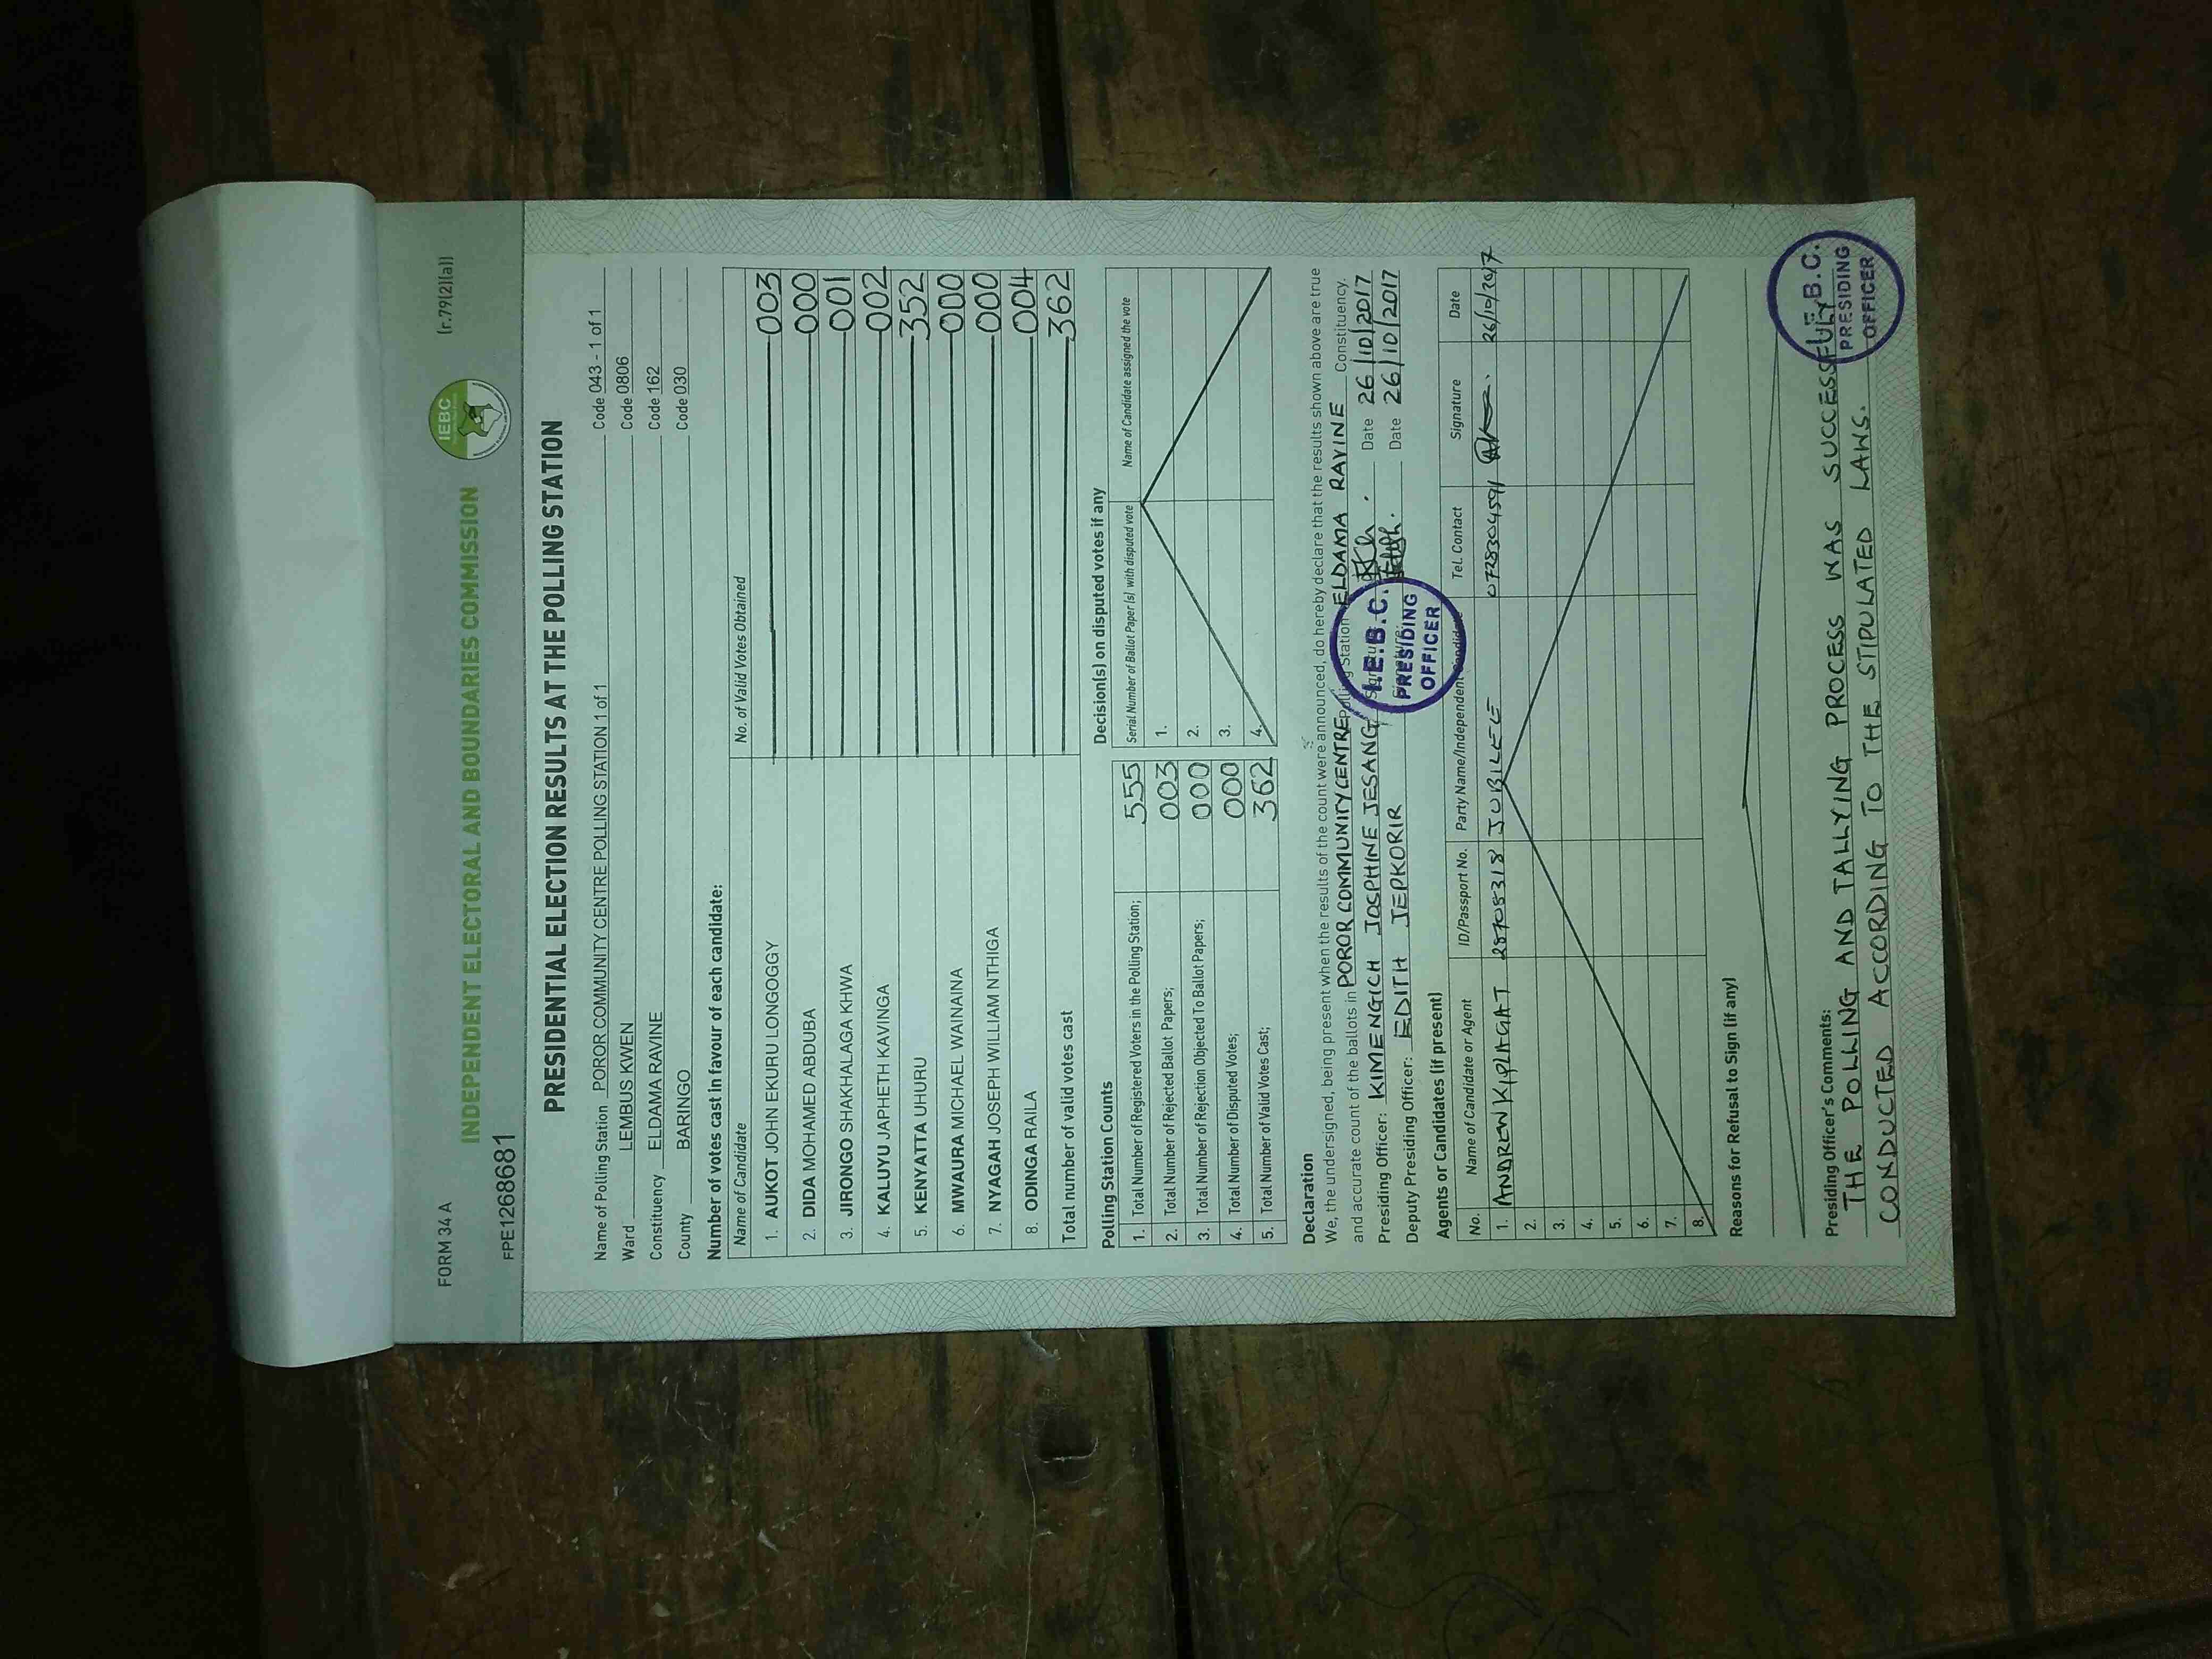 FORM 34 A
(r.79(2)(a))
IEBC
INDEPENDENT ELECTORAL AND BOUNDARIES COMMISSION
FPE1268681
PRESIDENTIAL ELECTION RESULTS AT THE POLLING STATION
Name of Polling Station POROR COMMUNITY CENTRE POLLING STATION 1 of 1 Code 043 - 1 of 1
Ward LEMBUS KWEN Code 0806
Constituency ELDAMA RAVINE Code 162
County BARINGO Code 030
Number of votes cast in favour of each candidate:
Name of Candidate No. of Valid Votes Obtained
1. AUKOT JOHN EKURU LONGOGGY 003
2. DIDA MOHAMED ABDUBA 000
3. JIRONGO SHAKHALAGA KHWA 001
4. KALUYU JAPHETH KAVINGA 002
5. KENYATTA UHURU 352
6. MWAURA MICHAEL WAINAINA 000
7. NYAGAH JOSEPH WILLIAM NTHIGA 000
8. ODINGA RAILA 004
Total number of valid votes cast 362
Polling Station Counts
1. Total Number of Registered Voters in the Polling Station; 555
2. Total Number of Rejected Ballot Papers; 003
3. Total Number of Rejection Objected To Ballot Papers; 000
4. Total Number of Disputed Votes; 000
5. Total Number of Valid Votes Cast; 362
Decision(s) on disputed votes if any
Serial Number of Ballot Paper (s) with disputed vote Name of Candidate assigned the vote
1.
2.
3.
4.
Declaration
We, the undersigned, being present when the results of the count were announced, do hereby declare that the results shown above are true
and accurate count of the ballots in POROR COMMUNITY CENTRE Polling Station ELDAMA RAVINE Constituency.
Presiding Officer: KIMENGICH JOSPHINE JESANG Date 26/10/2017
Deputy Presiding Officer: EDITH JEPKORIR Date 26/10/2017
I.E.B.C.
PRESIDING
OFFICER
Agents or Candidates (if present)
No. Name of Candidate or Agent ID/Passport No. Party Name/Independent Candidate Tel. Contact Signature Date
1. ANDREW KIPLAGAT 28708318 JUBILEE 0728304591 26/10/2017
2.
3.
4.
5.
6.
7.
8.
Reasons for Refusal to Sign (if any)
Presiding Officer's Comments:
THE POLLING AND TALLYING PROCESS WAS SUCCESSFULLY
CONDUCTED ACCORDING TO THE STIPULATED LAWS.
I.E.B.C.
PRESIDING
OFFICER